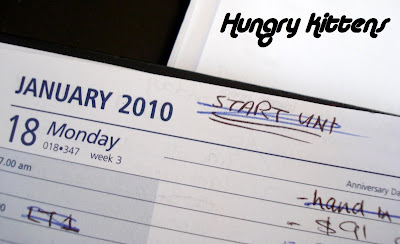 Hungry Kittens
JANUARY 2010
START UNI
18 Monday
018•347 week 3
Anniversary Da
7.00 am
hand in
- $91